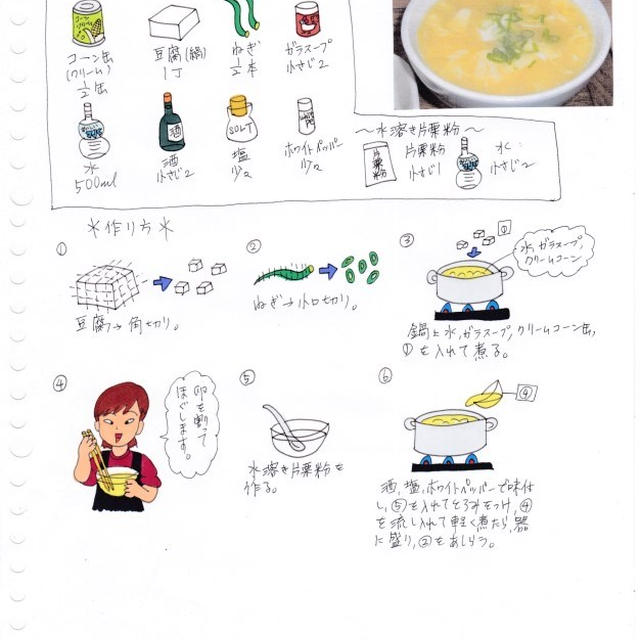 コーン缶
(クリーム)
1/2缶
豆腐(絹)
1丁
ねぎ
1/2本
ガラスープ
小さじ2
水
500ml
酒
酒
小さじ2
SOLT
塩
少々
ホワイトペッパー
少々
〜水溶き片栗粉〜
片栗粉
片栗粉
小さじ1
水:
小さじ2
*作り方*
①
豆腐→角切り。
②
ねぎ→小口切り。
③
①
水,ガラスープ,
クリームコーン
鍋に水,ガラスープ,クリームコーン缶,
①を入れて煮る。
④
卵を割って
ほぐします。
⑤
水溶き片栗粉を
作る。
⑥
④
酒,塩,ホワイトペッパーで味付
し,⑤を入れてとろみをつけ,④
を流し入れて軽く煮たら,器
に盛り,②をあしらう。